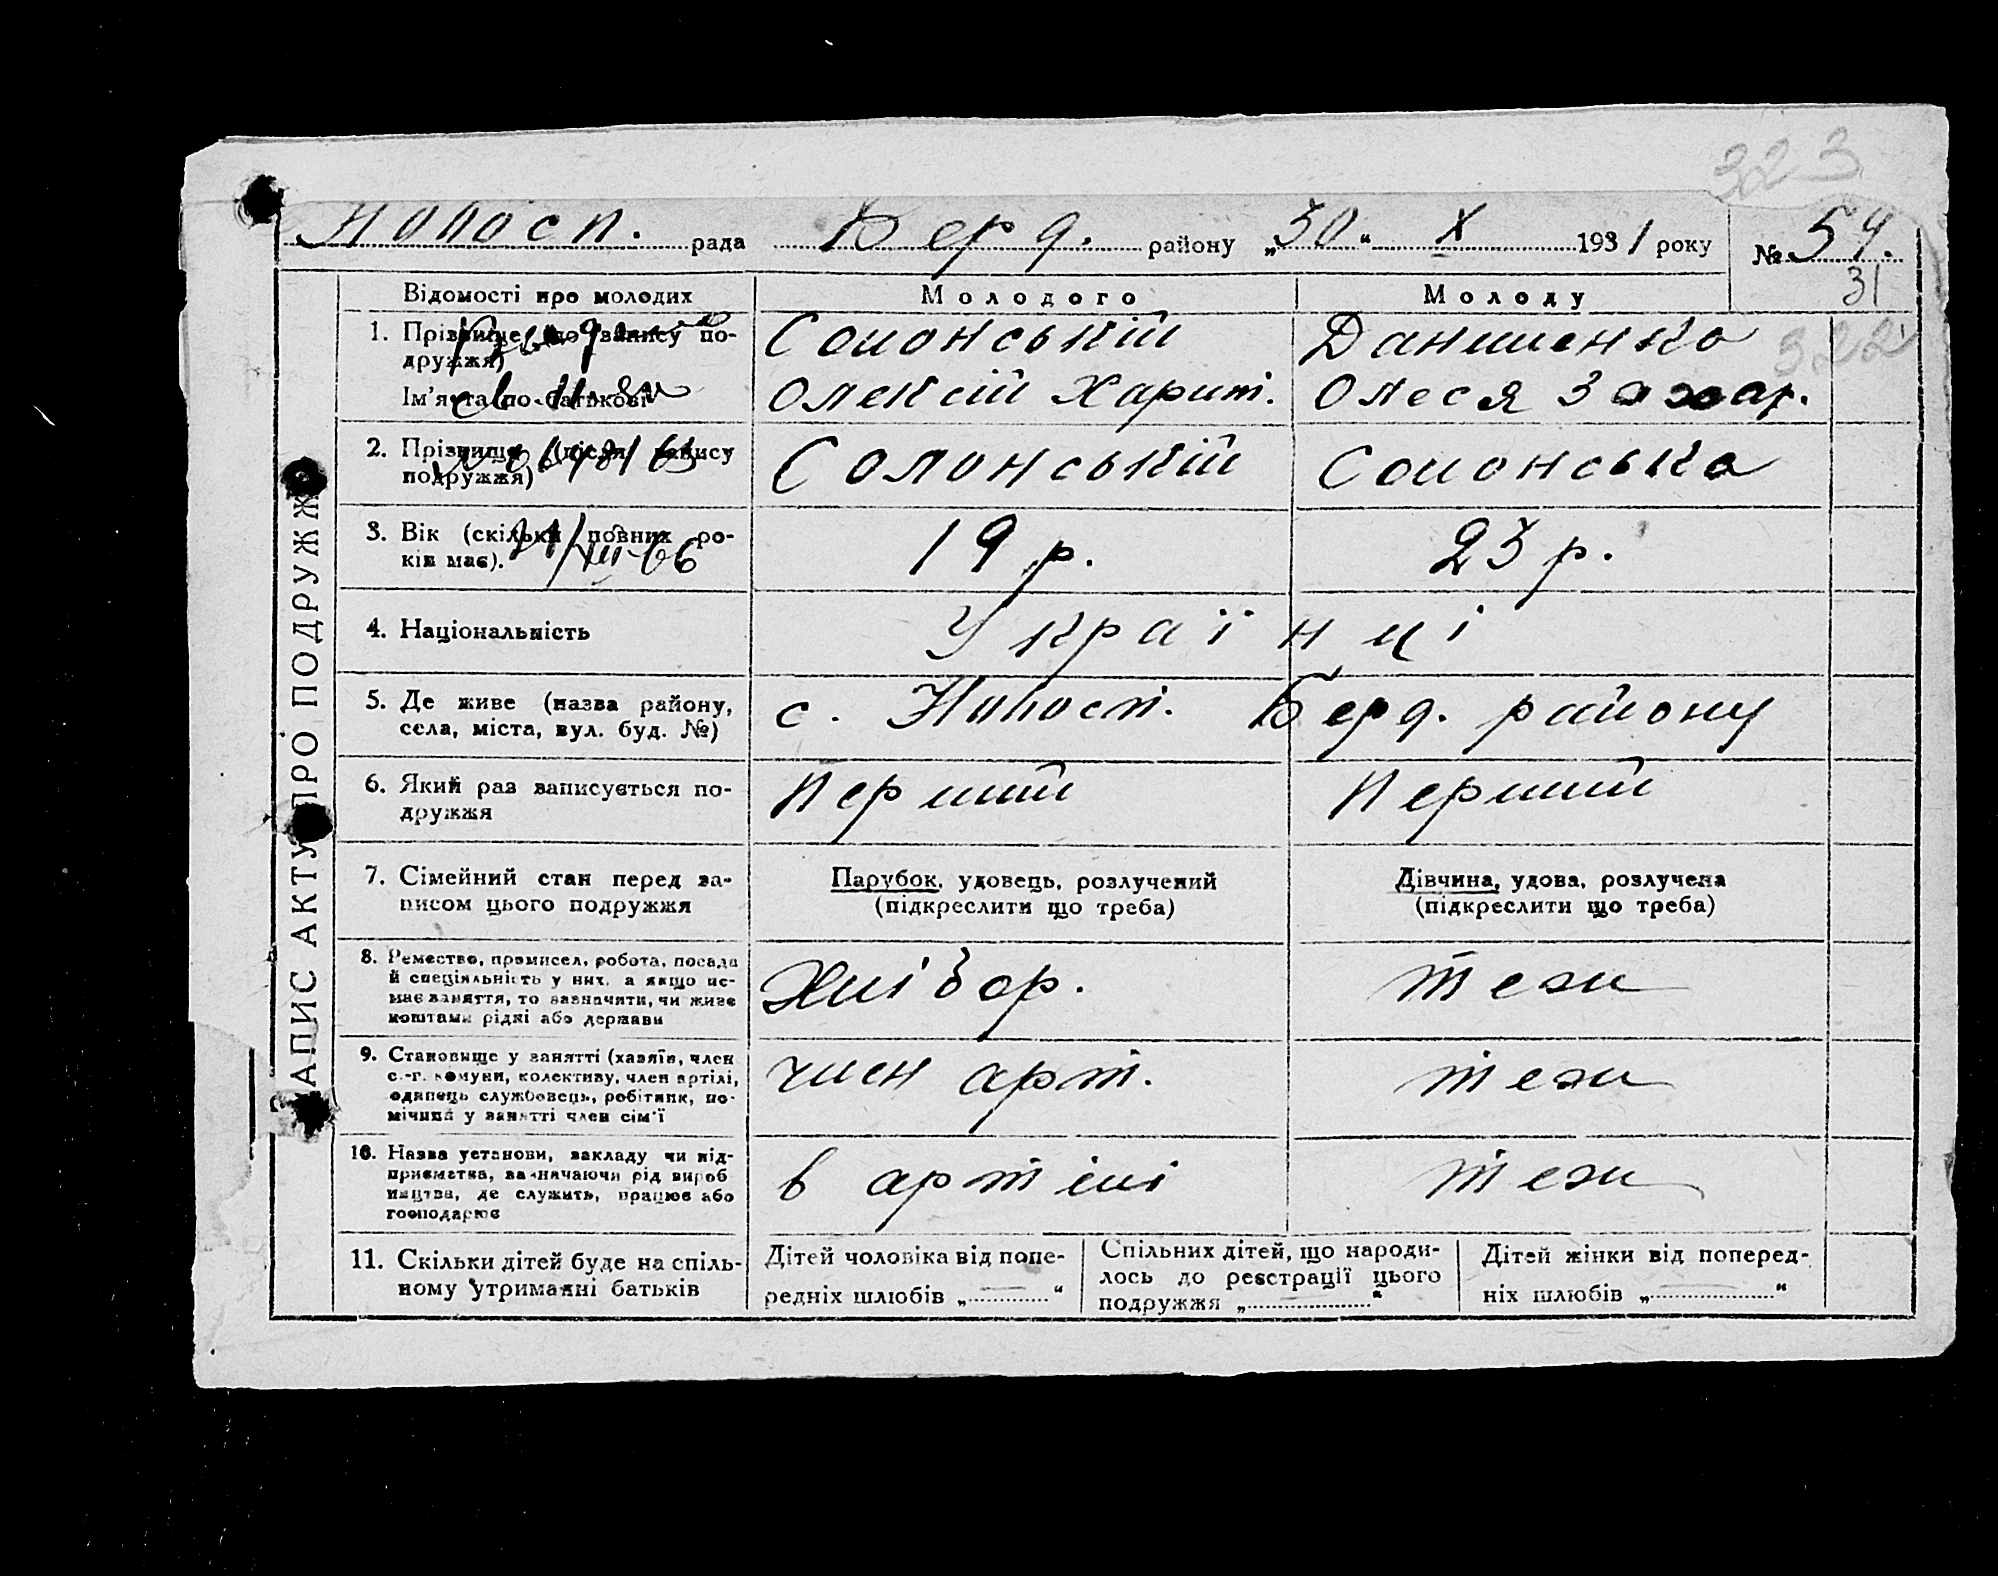 323
Новосп. рада Берд. району „30“ X 1931 року № 54.
31
ЗАПИС АКТУ ПРО ПОДРУЖЖЯ
Відомості про молодих Молодого Молоду
322
1. Прізвище (до запису по- Солонській Данишенко
дружжя)
Ім'я та по-батькові Олексій Харит. Олеся Захар.
2. Прізвище (після запису Солонській Солонська
подружжя)
3. Вік (скільки повних ро- 19 р. 23 р.
ків має). 21/VIII-66
4. Національність Українці
5. Де живе (назва району, с. Новосп. Берд. району
села, міста, вул. буд. №)
6. Який раз записується по- Перший Перший
дружжя
7. Сімейний стан перед за- Парубок, удовець, розлучений Дівчина, удова, розлучена
писом цього подружжя (підкреслити що треба) (підкреслити що треба)
8. Ремество, промисел, робота, посада
й спеціяльність у них, а якщо не- Хлібор. теж
має заняття, то зазначити, чи живе
коштами рідні або держави
9. Становище у занятті (хазяїн, член
с.-г. комуни, колективу, член артілі, член арт. теж
одинець службовець, робітник, по-
мічний у занятті член сім'ї
10. Назва установи, закладу чи під-
приємства, зазначаючи рід вироб в артілі теж
ництва, де служить, працює або
господарює
11. Скільки дітей буде на спіль- Дітей чоловіка від попе- Спільних дітей, що народи- Дітей жінки від поперед-
ному утриманні батьків редніх шлюбів „—“ лось до реєстрації цього ніх шлюбів „—“
подружжя „—“